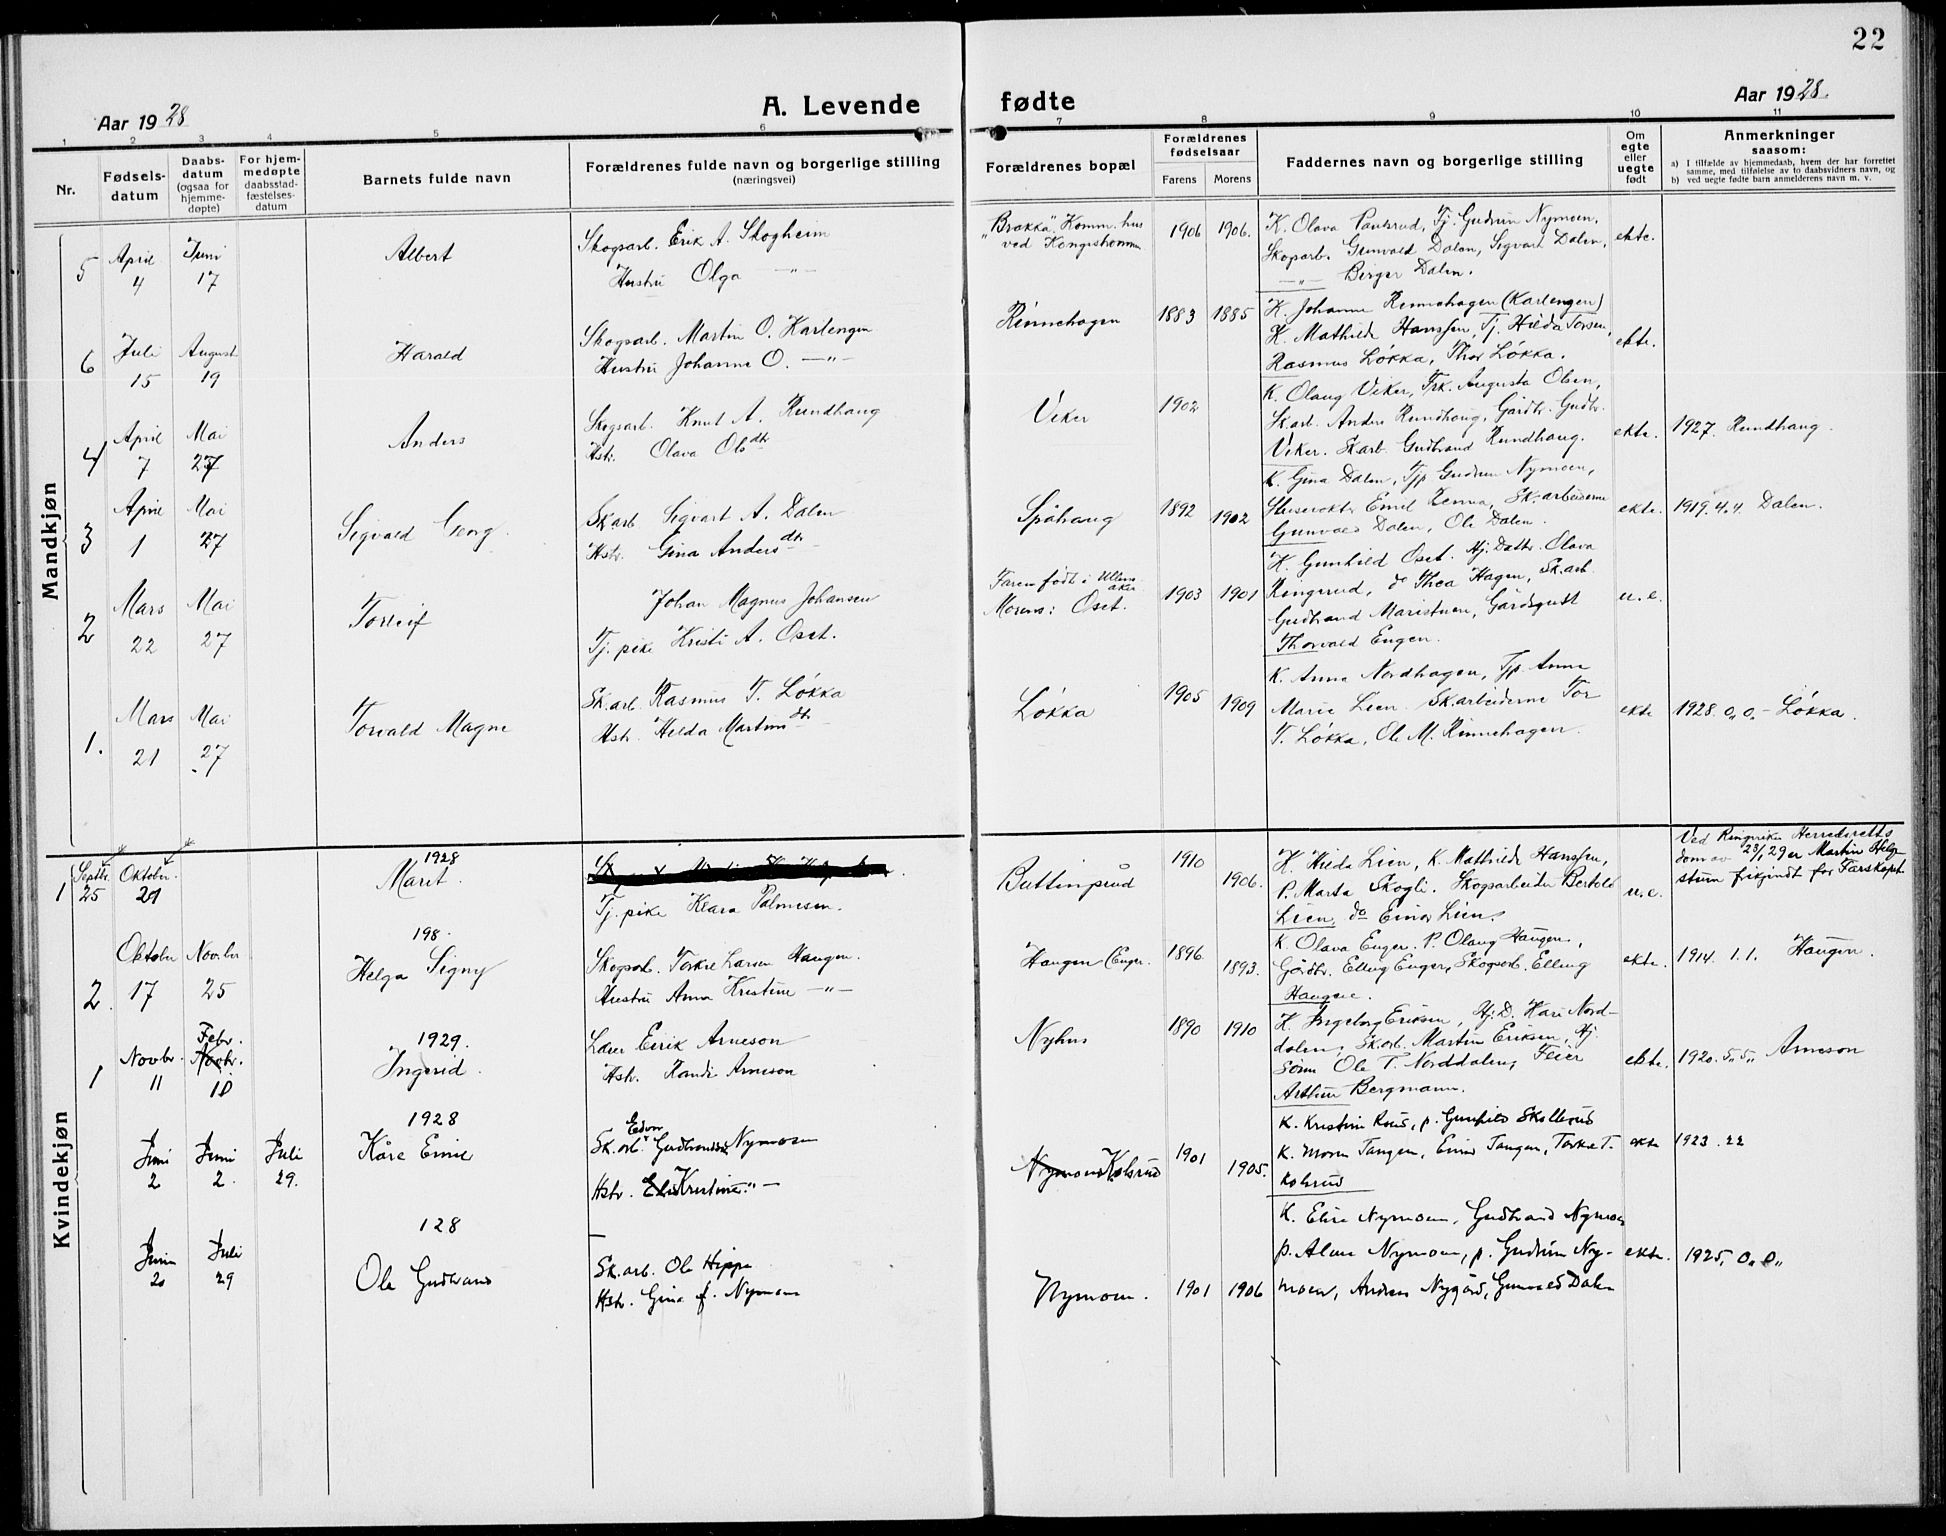 22
Aar 1928
A. Levende fødte
Aar 1928.
1 2 3 4 5 6 7 8 9 10 11
Nr.
Fødsels-
datum
Daabs-
datum
(ogsaa for
hjemme-
døpte)
For hjem-
medøpte
daabsstad-
fæstelses-
datum
Barnets fulde navn
Forældrenes fulde navn og borgerlige stilling
(næringsvei)
Forældrenes bopæl
Forældrenes
fødselsaar
Farens Morens
Faddernes navn og borgerlige stilling
Om
egte
eller
uegte
født
Anmerkninger
saasom:
a) I tilfælde av hjemmedaab, hvem der har forrettet
samme, med tilføielse av to daabsvidners navn, og
b) ved uegte fødte barn anmelderens navn m. v.
Mandkjøn
5 April 4 Juni 17
Albert
Skogsarb. Erik A. Skogheim
Hustru Olga —"—
"Brakka" Komm. hus
ved
1906 1906.
K. Olava Paulsrud, Tj. Gudrun Nymoen,
Skogarb. Gunvald Dalen, Sigvart Dalen,
—"— Birger Dalen.
ekte.
6 Juli 15 August 19
Harald
Skogsarb. Martin O. Karlengen
Hustru Johanne O. —"—
Rinnehagen
1883 1885
K. Johanne Rinnehagen (Karlengen)
K. Mathilde Hanssen, Tj. Hilda Torsen,
Rasmus Løkka, Thor Løkka.
ekte.
4 April 7 Mai 27
Anders
Skogsarb. Knut A. Rundhaug
Hstr. Olava Olsdtr
Viker
1902
K. Olaug Viker, Frk. Augusta Olsen,
Skarb. Anders Rundhaug, Gårdbr. Gudbr.
Viker. Skarb. Gudbrand Rundhaug.
ekte.
1927. Rundhaug.
3 April 1 Mai 27
Sigvald Georg
Skarb. Sigvart A. Dalen
Hstr. Gina Andersdtr
Spåhaug
1892 1902
K. Gina Dalen, Tjp Gudrun Nymoen,
Emil Renna, Sk.arbeiderne
Gunvald Dalen, Ole Dalen.
ekte.
1919. 4. 4. Dalen.
2 Mars 22 Mai 27
Torleif
Johan Magnus Johansen
Tj. pike Kristi A. Oset.
Faren født i Ullens
aker
Morens: Oset.
1903 1901
K. Gunhild Oset. Hj. Dattr. Olava
Ringerud, do Thea Hagen, Sk.arb.
Gudbrand Maristuen, Gårdsgutt
Thorvald Engen.
u. e.
1. Mars 21 Mai 27
Torvald Magne
Sk.arb. Rasmus T. Løkka
Hstr. Hilda Martinsdtr
Løkka
1905 1909
K. Anna Nordhagen, Tjp Anna
Marie Lien. Sk.arbeiderne Tor
T. Løkka, Ole M. Rinnehagen.
ekte
1928. 0. 0. – Løkka.
Kvindekjøn
1 Septbr. 25 Oktober. 21
1928
Marit.
Tj. pike Klara Palmesen.
Buttingsrud
1910 1906.
K. Hilda Lien, K. Mathilde Hanssen,
P. Marta Skogli. Skogsarbeider Bertold
Lien, do Einar Lien.
u. e.
Ved Ringerike Herredsretts
dom av 23/1 29 er Martin Helge-
stum frikjendt for Farskapet.
2 Oktober 17 Novbr 25
198.
Helga Signy
Skogsarb. Torkel Larsen Haugen.
Hustru Anna Kristine —"—
Haugen (Enger.
1896. 1893.
K. Olava Enger. P. Olaug Haugen,
Gårdbr. Elling Enger, Skogsarb. Elling
Haugene.
ekte.
1914. 1. 1. Haugen.
1 Novbr. 11 Febr. Novbr. 10
1929.
Ingerid.
Lærer Eirik Arneson
Hstr. Randi Arneson
Nyhus
1890 1910
K. Ingeborg Eriksen, Hj. D. Kari Nord-
dalen, Sk.arb. Martin Eriksen, Hj.
Sønn Ole T. Norddalen, Feier
Arthur Bergmann.
ekte.
1920. 5. 5. Arneson
Juni 2 Juni 2. Juli 29.
1928
Kåre Emil
Edvor
Sk.arb. Gudbrandsen Nymoen
Hstr. Kristine "—
Nymoen Kolsrud
1901 1905.
K. Kristine Rous, p. Gunhild Skollerud
K. Moren Tangen, Einar Tangen, Torkel T.
Kolsrud
ekte
1923. 22
Juni 20 Juli 29
128
Ole Gudbrand
Sk.arb. Ole Hippe
Hstr. Gina f. Nymoen
Nymoen.
1901 1906
K. Elise Nymoen, Gudbrand Nymoen
p. Alma Nymoen, p. Gudrun Ny-
moen, Anders Nygård, Gunvald Dalen
ekte.
1925, 0. 0.